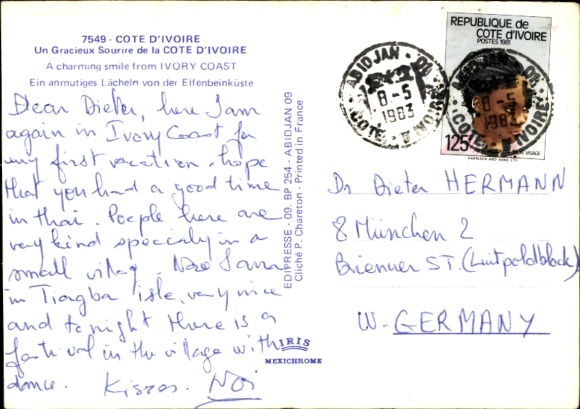 7549 - COTE D'IVOIRE
Un Gracieux Sourire de la COTE D'IVOIRE
A charming smile from IVORY COAST
Ein anmutiges Lächeln von der Elfenbeinküste
Dear Dieter, here I am
again in Ivory Coast for
my first vacation. hope
that you had a good time
in thai. People here are
very kind specialy in a
small village. Now I am
in Tiagba isle, very nice
and to night there is a
festival in the village with
dance. Kisses. Noi
EDIPRESSE - 09. BP 254 - ABIDJAN 09
Cliché P. Chareton - Printed in France
IRIS
MEXICHROME
REPUBLIQUE de
COTE d'IVOIRE
POSTES 1981
125F
VISAGE
ABIDJAN 09
8-5
1983
COTE D'IVOIRE
ABIDJAN 09
8-5
1983
COTE D'IVOIRE
Dr Dieter HERMANN
8 München 2
Brienner ST. (Luitpoldblock)
W. GERMANY